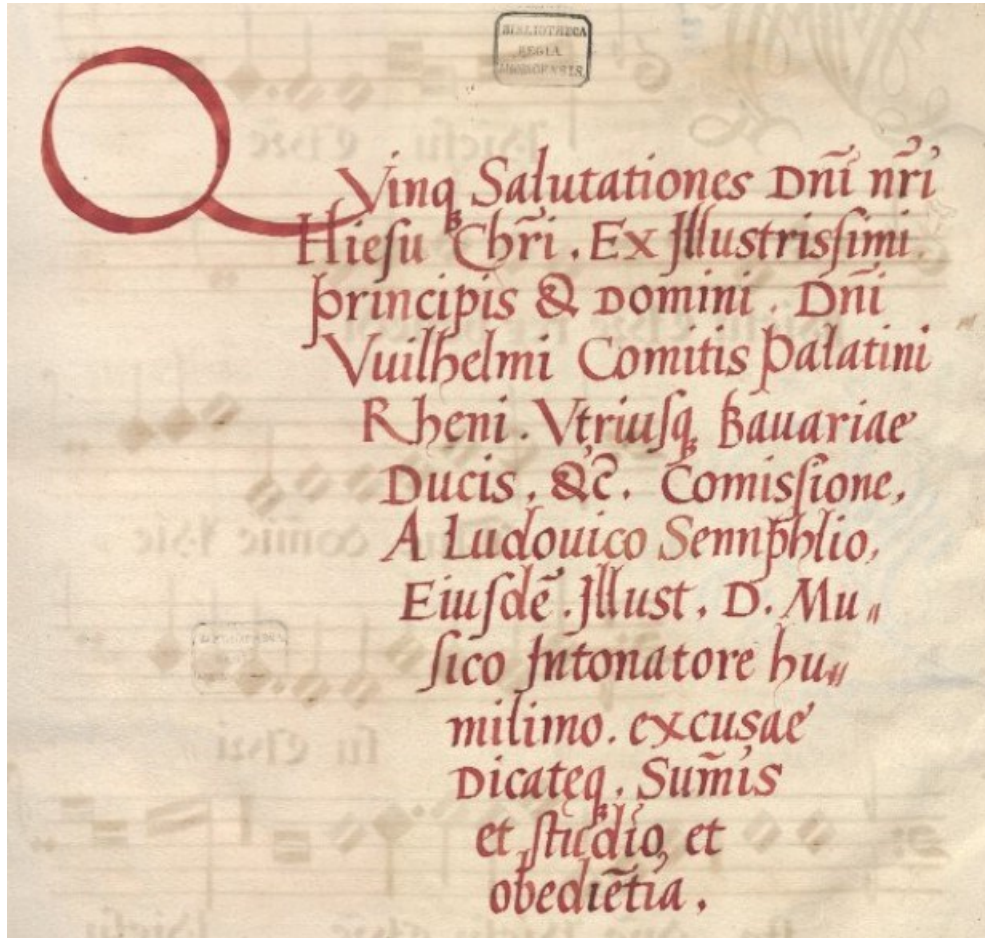 BIBLIOTHECA
REGIA
MONACENSIS.
QVinqꝫ Salutationes Dn̄i nr̄i
Hieſu Chr̄i . Ex Jlluſtriſſimi .
principis & Domini . Dn̄i
Vuilhelmi Comitis Palatini
Rheni . Vtriuſqꝫ Bauariae
Ducis , &c̄ . Com̄iſſione ,
A Ludouico Sennphlio ,
Eiuſdē . Jllust . D . Mu〃
ſico Jntonatore hu〃
milimo . excusae
Dicatęqꝫ . Sum̄is
et ſtudio, et
obediētia .